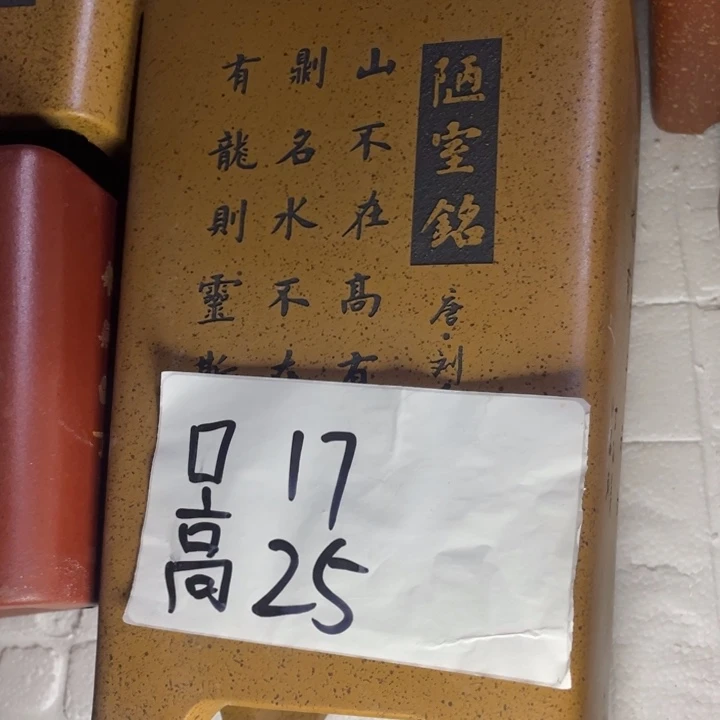 陋室銘
唐·刘
山不在高有
則名水不在
有龍則靈斯
口 17
高 25